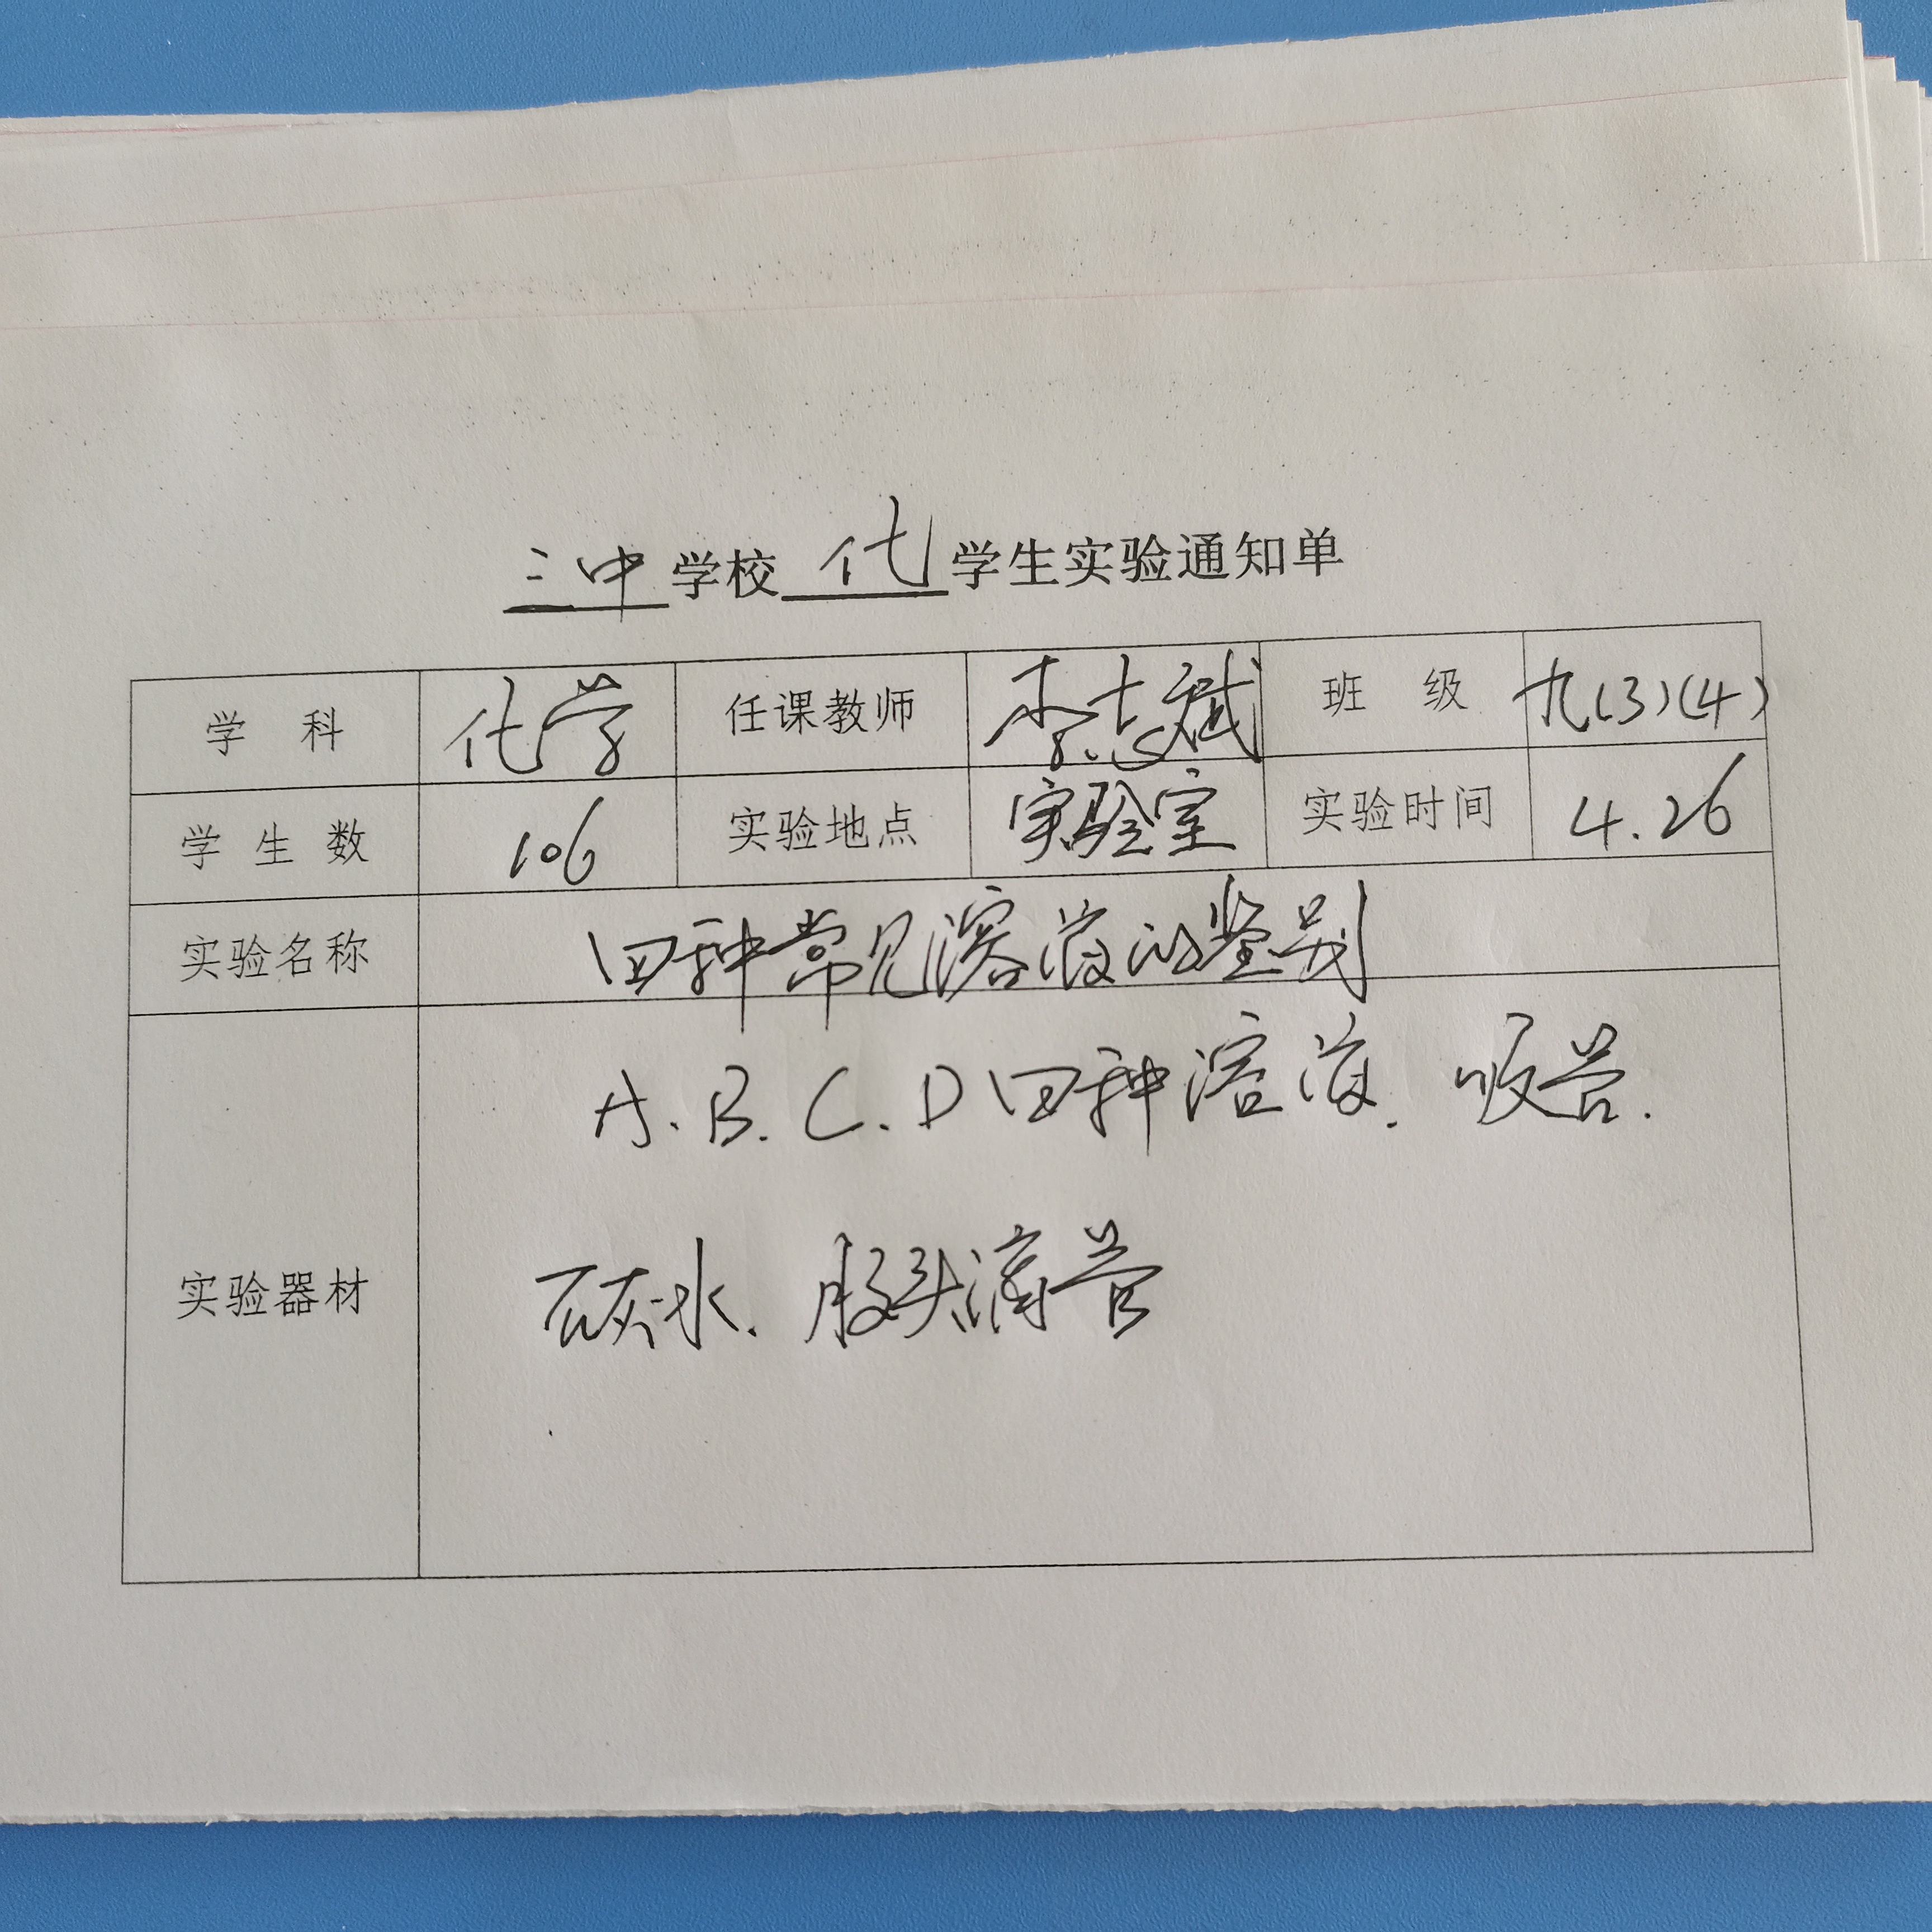 三中学校化学生实验通知单
学科 化学 任课教师 李志斌 班级 九(3)(4)
学生数 106 实验地点 实验室 实验时间 4.26
实验名称 四种常见溶液的鉴别
A.B.C.D四种溶液.吸管.
实验器材 碳水.胶头滴管